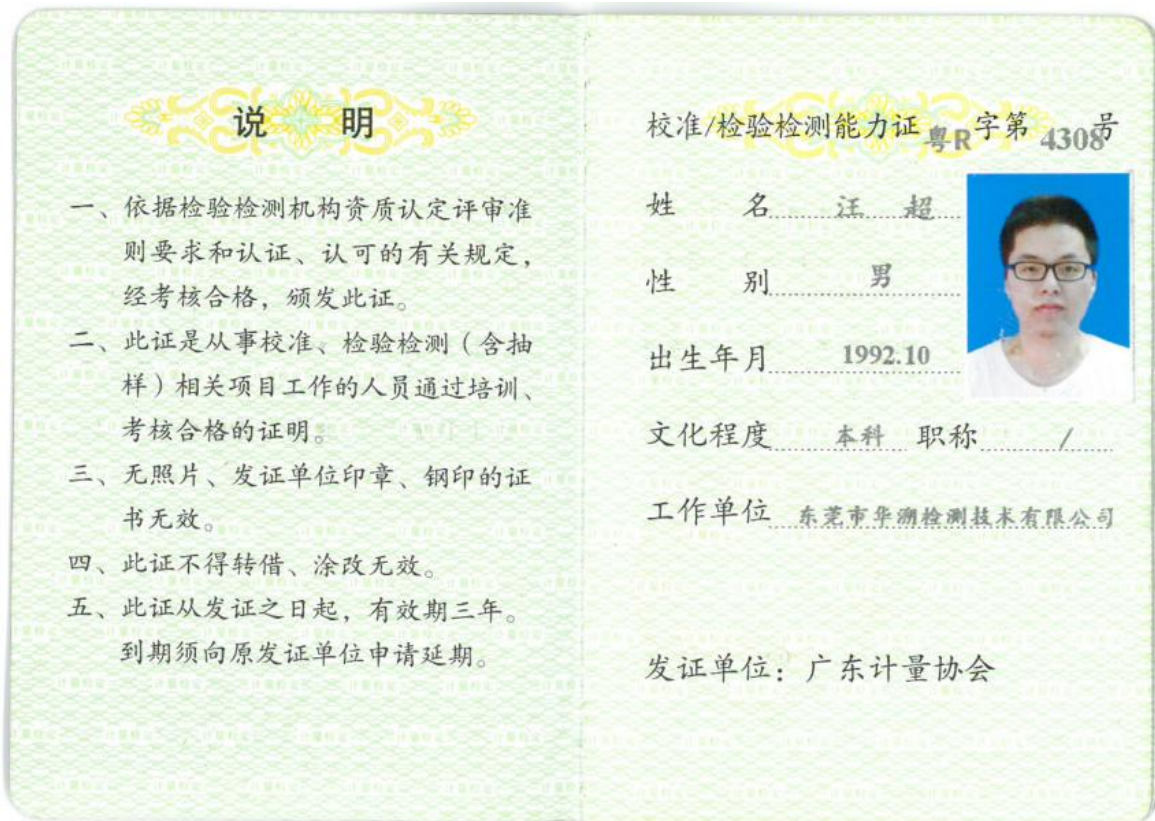 说 明
一、依据检验检测机构资质认定评审准
则要求和认证、认可的有关规定，
经考核合格，颁发此证。
二、此证是从事校准、检验检测（含抽
样）相关项目工作的人员通过培训、
考核合格的证明。
三、无照片、发证单位印章、钢印的证
书无效。
四、此证不得转借、涂改无效。
五、此证从发证之日起，有效期三年。
到期须向原发证单位申请延期。
校准/检验检测能力证 粤R字第 4308号
姓 名 汪 超
性 别 男
出生年月 1992.10
文化程度 本科 职称 /
工作单位 东莞市华溯检测技术有限公司
发证单位：广东计量协会